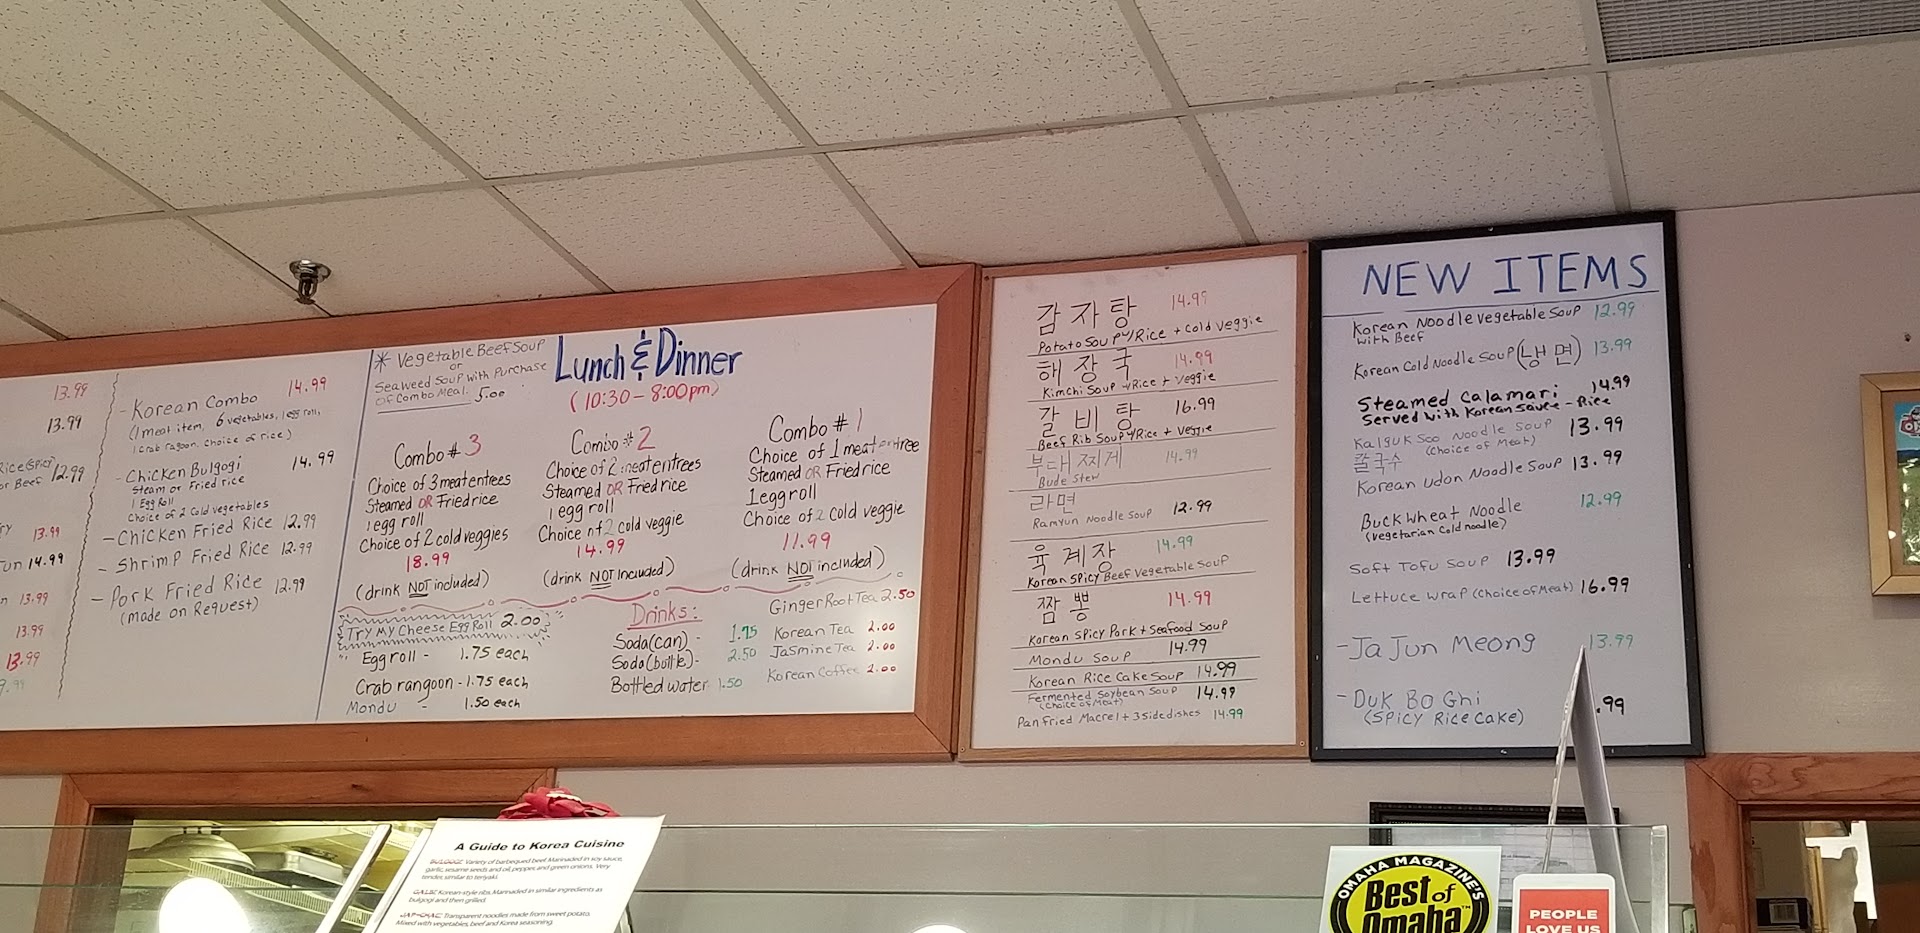 13.99
13.99
Rice (Spicy)
or Beef 12.99
13.99
14.99
13.99
13.99
13.99
9.99
- Korean Combo 14.99
(1 meat item, 6 vegetables, 1 egg roll,
1 crab ragoon, choice of rice)
- Chicken Bulgogi 14.99
Steam or Fried rice
1 Egg Roll
Choice of 2 Cold vegetables
- Chicken Fried Rice 12.99
- Shrimp Fried Rice 12.99
- Pork Fried Rice 12.99
(made on Request)
* Vegetable Beef Soup
or
Seaweed Soup with Purchase
of Combo Meal. 5.00
Lunch & Dinner
(10:30 - 8:00pm)
Combo # 3
Choice of 3 meat entrees
Steamed OR Fried rice
1 egg roll
Choice of 2 cold veggies
18.99
(drink NOT included)
Combo # 2
Choice of 2 meat entrees
Steamed OR Fried rice
1 egg roll
Choice of 2 cold veggie
14.99
(drink NOT Included)
Combo # 1
Choice of 1 meat entree
Steamed OR Fried rice
1 egg roll
Choice of 2 cold veggie
11.99
(drink NOT included)
Try My Cheese Egg Roll 2.00
Egg roll - 1.75 each
Crab rangoon - 1.75 each
Mondu - 1.50 each
Drinks:
Soda (can) - 1.75
Soda (bottle) - 2.50
Bottled water 1.50
Ginger Root Tea 2.50
Korean Tea 2.00
Jasmine Tea 2.00
Korean Coffee 2.00
감자탕 14.99
Potato Soup w/Rice + Cold Veggie
해장국 14.99
Kimchi Soup w/Rice + Veggie
갈비탕 16.99
Beef Rib Soup w/Rice + Veggie
부대찌게 14.99
Bude Stew
라면
Ramyun Noodle Soup 12.99
육계장 14.99
Korean Spicy Beef Vegetable Soup
짬뽕 14.99
Korean Spicy Pork + Seafood Soup
Mondu Soup 14.99
Korean Rice Cake Soup 14.99
Fermented Soybean Soup 14.99
(Choice of Meat)
Pan Fried Macrel + 3 Side dishes 14.99
NEW ITEMS
Korean Noodle Vegetable Soup 12.99
with Beef
Korean Cold Noodle Soup (냉면) 13.99
Steamed Calamari 14.99
Served with Korean Sauce - Rice
Kalguk Soo Noodle Soup 13.99
칼국수 (Choice of Meat)
Korean Udon Noodle Soup 13.99
Buckwheat Noodle 12.99
(Vegetarian Cold noodle)
Soft Tofu Soup 13.99
Lettuce Wrap (Choice of Meat) 16.99
- Ja Jun Meong 13.99
- Duk Bo Ghi .99
(Spicy Rice Cake)
A Guide to Korea Cuisine
BULGOGI: Variety of barbequed beef. Marinaded in soy sauce,
garlic, sesame seeds and oil, pepper, and green onions. Very
tender, similar to teriyaki.
GALBI: Korean-style ribs. Marinaded in similar ingredients as
bulgogi and then grilled.
JAP-CHAE: Transparent noodles made from sweet potato.
Mixed with vegetables, beef and Korea seasoning.
OMAHA MAGAZINE'S
Best of
Omaha
PEOPLE
LOVE US